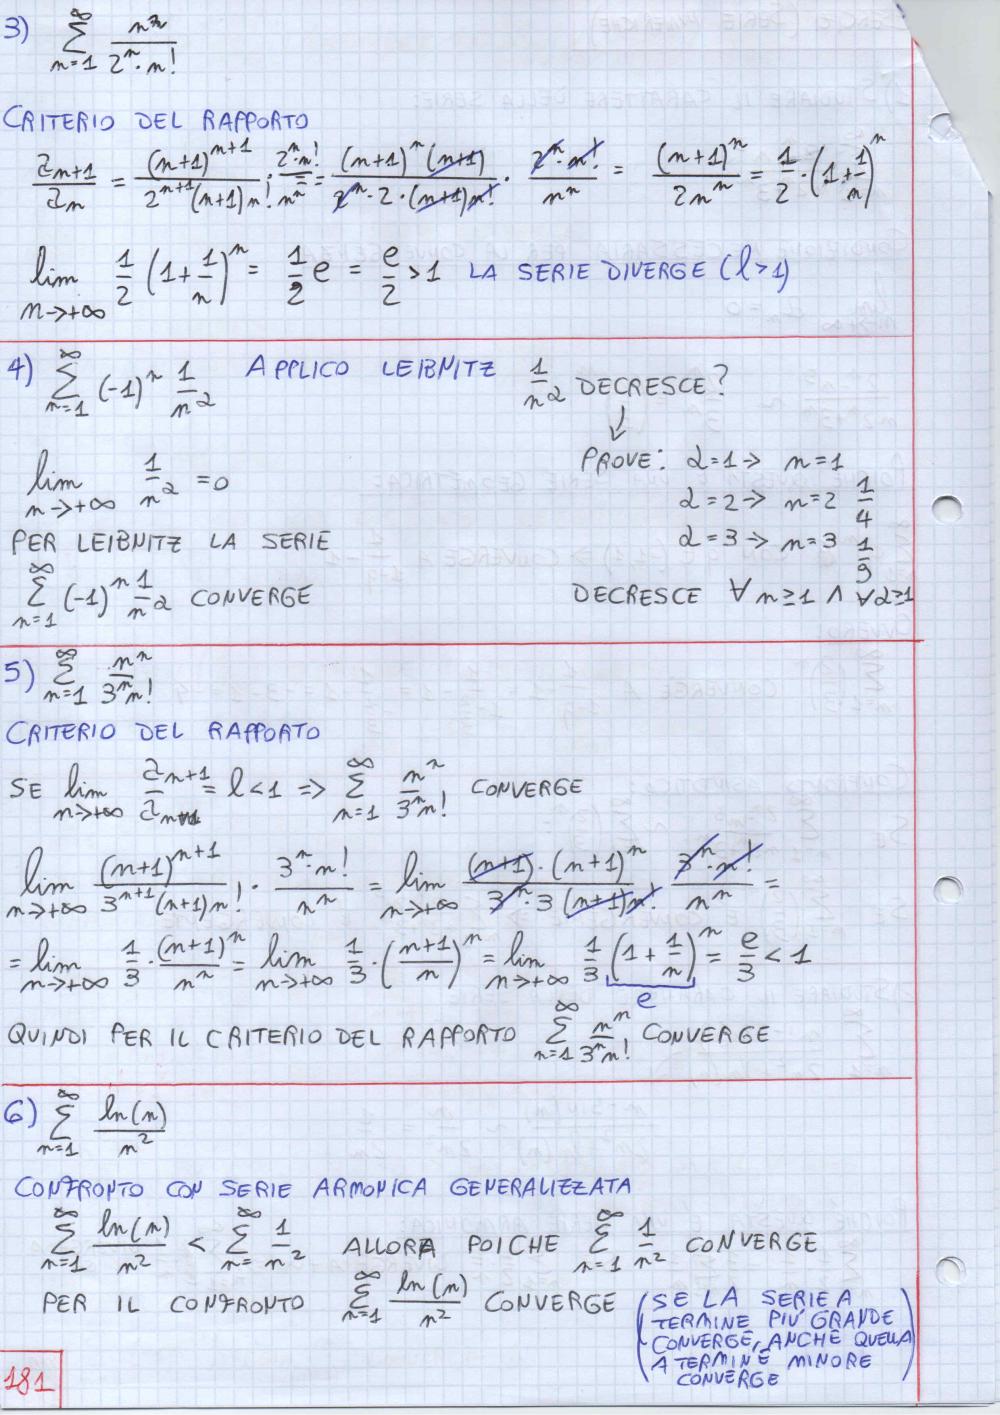 3) ∑_{n=1}^{∞} n^n / (2^n · n!)
CRITERIO DEL RAPPORTO
a_{n+1} / a_n = (n+1)^{n+1} / (2^{n+1} (n+1) n!) · 2^n · n! / n^n = (n+1)^n (n+1) / (2^n · 2 · (n+1) n!) · 2^n · n! / n^n = (n+1)^n / (2 n^n) = 1/2 · (1 + 1/n)^n
lim_{n→+∞} 1/2 (1 + 1/n)^n = 1/2 e = e/2 > 1 LA SERIE DIVERGE (l > 1)
4) ∑_{n=1}^{∞} (-1)^n 1/n^α APPLICO LEIBNITZ 1/n^α DECRESCE?
lim_{n→+∞} 1/n^α = 0
PER LEIBNITZ LA SERIE
∑_{n=1}^{∞} (-1)^n 1/n^α CONVERGE
PROVE: α=1 → n=1
α=2 → n=2 1/4
α=3 → n=3 1/9
DECRESCE ∀ n≥1 ∧ ∀α≥1
5) ∑_{n=1}^{∞} n^n / (3^n n!)
CRITERIO DEL RAPPORTO
SE lim_{n→+∞} a_{n+1} / a_n = l < 1 => ∑_{n=1}^{∞} n^n / (3^n n!) CONVERGE
lim_{n→+∞} (n+1)^{n+1} / (3^{n+1} (n+1) n!) · 3^n · n! / n^n = lim_{n→+∞} (n+1) · (n+1)^n / (3^n · 3 (n+1) n!) 3^n · n! / n^n =
= lim_{n→+∞} 1/3 · (n+1)^n / n^n = lim_{n→+∞} 1/3 · ((n+1)/n)^n = lim_{n→+∞} 1/3 (1 + 1/n)^n = e/3 < 1
e
QUINDI PER IL CRITERIO DEL RAPPORTO ∑_{n=1}^{∞} n^n / (3^n n!) CONVERGE
6) ∑_{n=1}^{∞} ln(n) / n^2
CONFRONTO CON SERIE ARMONICA GENERALIZZATA
∑_{n=1}^{∞} ln(n) / n^2 < ∑_{n=}^{∞} 1/n^2 ALLORA POICHE ∑_{n=1}^{∞} 1/n^2 CONVERGE
PER IL CONFRONTO ∑_{n=1}^{∞} ln(n) / n^2 CONVERGE
(SE LA SERIE A
TERMINE PIU' GRANDE
CONVERGE, ANCHE QUELLA
A TERMINE MINORE
CONVERGE)
181